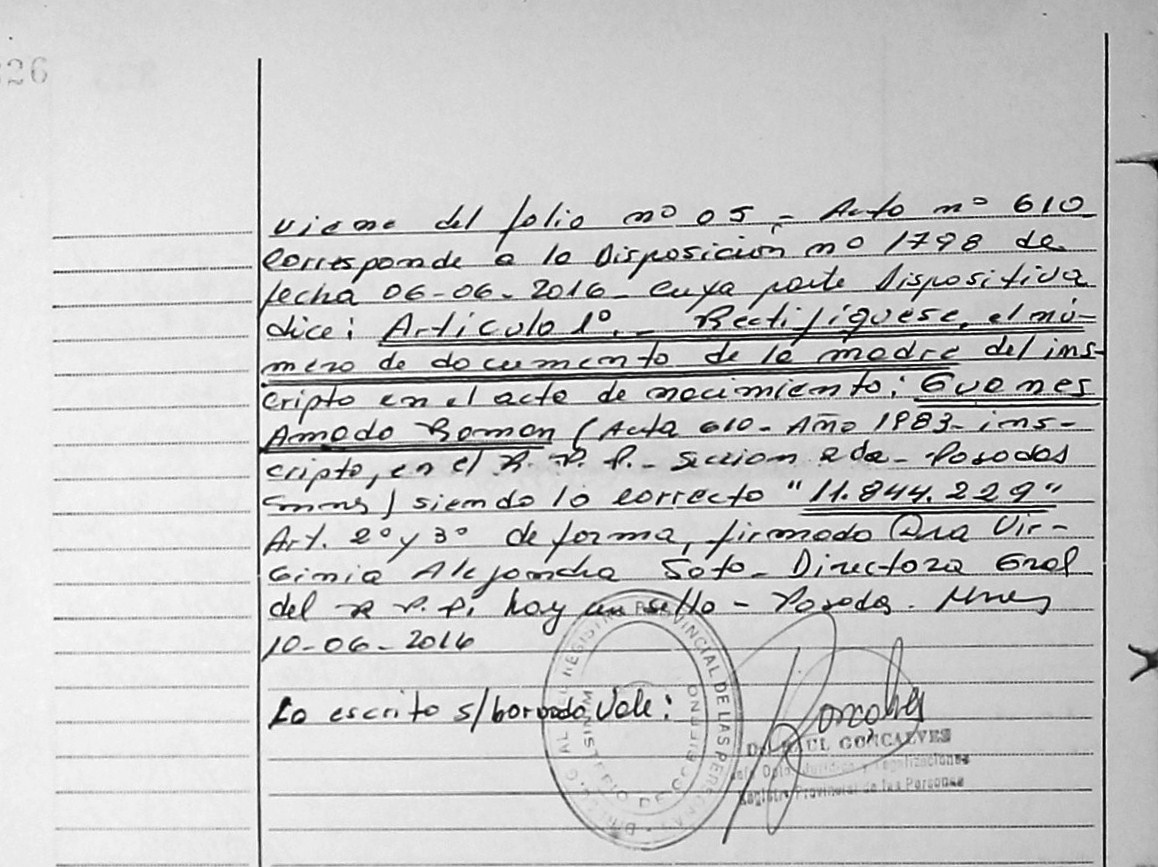 326
Viene del folio nº 05 - Acta nº 610
Corresponde a la Disposición nº 1798 de
fecha 06-06-2016 - Cuya parte Dispositiva
dice: Artículo 1º.- Rectifíquese, el nú-
mero de documento de la madre del ins-
cripto en el acta de nacimiento:
Amado Ramon (Acta 610 - Año 1983 - ins-
cripto, en el R. P. P. - Seccion 2da - Posadas
Mnes) siendo lo correcto "11.844.229"
Art. 2º y 3º de forma, firmado Dra Vir-
ginia Alejandra Soto - Directora Gral
del R. P. P. hay un sello - Posadas. Mnes
10-06-2016
Lo escrito s/borrado, Vale:
REGISTRO PROVINCIAL DE LAS PERSONAS
MINISTERIO DE GOBIERNO
RAUL GONCALVES
Jefe Dpto. Jurídico y Legalizaciones
Registro Provincial de las Personas